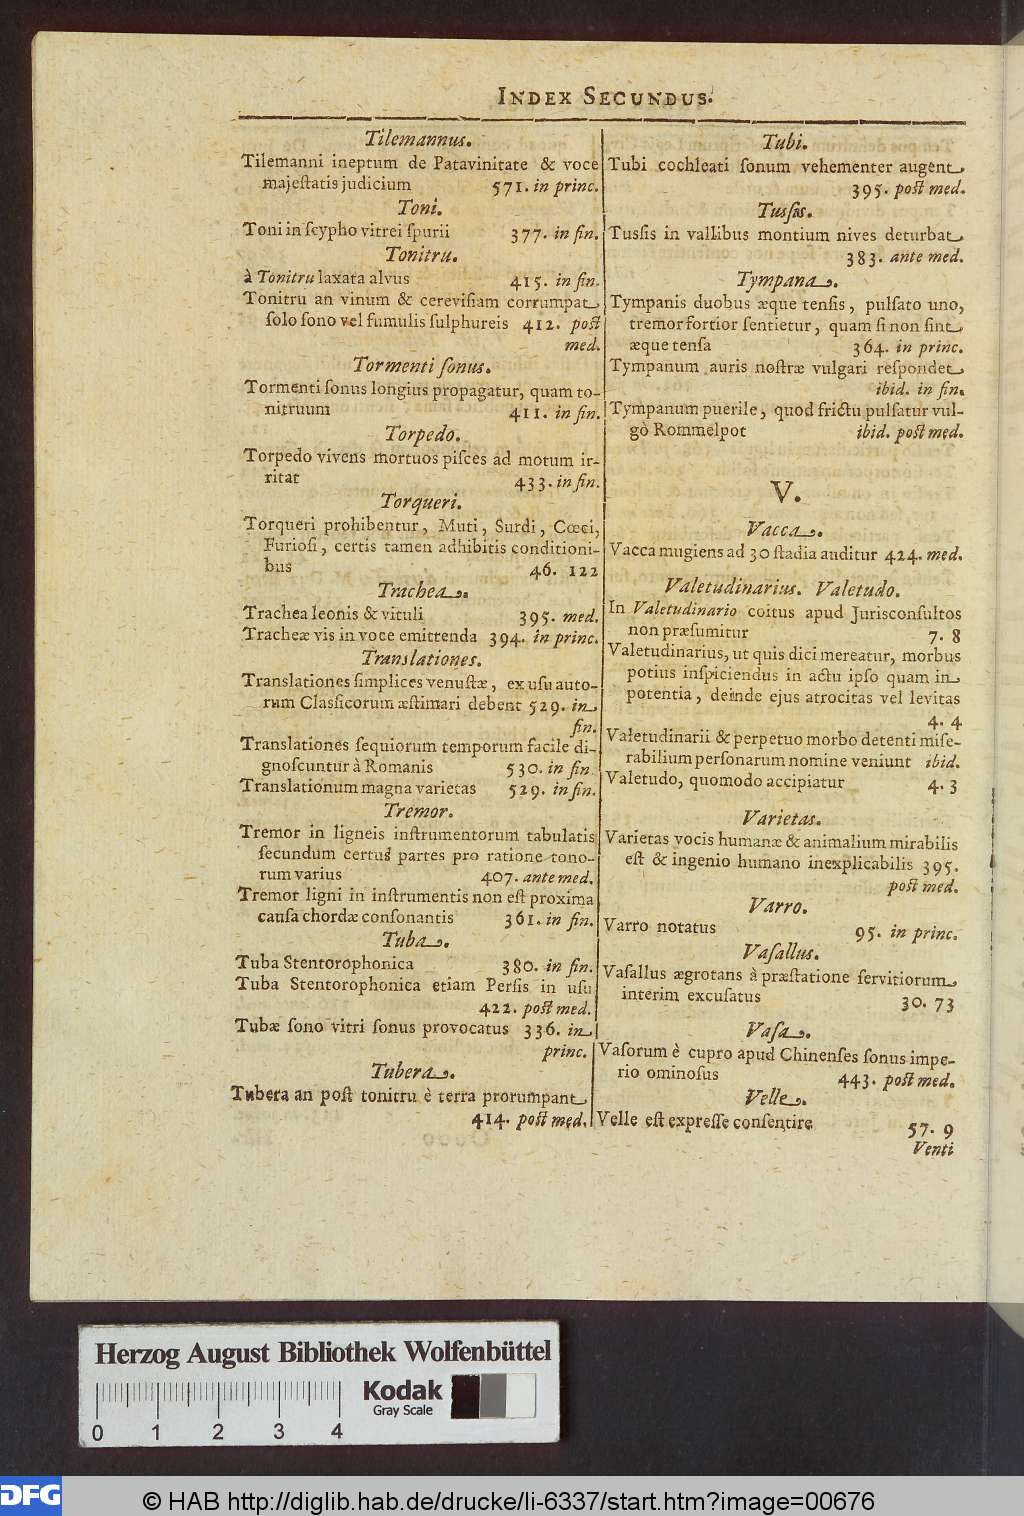 INDEX SECUNDUS.
Tilemannus.
Tilemanni ineptum de Patavinitate & voce
majeſtatis judicium 571. in princ.
Toni.
Toni in ſcypho vitrei ſpurii 377. in fin.
Tonitru.
à Tonitru laxata alvus 415. in fin.
Tonitru an vinum & cereviſiam corrumpat
ſolo ſono vel fumulis ſulphureis 412. poſt
med.
Tormenti ſonus.
Tormenti ſonus longius propagatur, quam to-
nitruum 411. in fin.
Torpedo.
Torpedo vivens mortuos piſces ad motum ir-
ritat 433. in fin.
Torqueri.
Torqueri prohibentur, Muti, Surdi, Cœci,
Furioſi, certis tamen adhibitis conditioni-
bus 46. 122
Trachea.
Trachea leonis & vituli 395. med.
Tracheæ vis in voce emittenda 394. in princ.
Translationes.
Translationes ſimplices venuſtæ, ex uſu auto-
rum Claſſicorum æſtimari debent 529. in
fin.
Translationes ſequiorum temporum facile di-
gnoſcuntur à Romanis 530. in fin.
Translationum magna varietas 529. in fin.
Tremor.
Tremor in ligneis inſtrumentorum tabulatis
ſecundum certus partes pro ratione tono-
rum varius 407. ante med.
Tremor ligni in inſtrumentis non eſt proxima
cauſa chordæ conſonantis 361. in fin.
Tuba.
Tuba Stentorophonica 380. in fin.
Tuba Stentorophonica etiam Perſis in uſu
422. poſt med.
Tubæ ſono vitri ſonus provocatus 336. in
princ.
Tubera.
Tubera an poſt tonitru è terra prorumpant
414. poſt med.
Tubi.
Tubi cochleati ſonum vehementer augent
395. poſt med.
Tuſſis.
Tuſſis in vallibus montium nives deturbat
383. ante med.
Tympana.
Tympanis duobus æque tenſis, pulſato uno,
tremor fortior ſentietur, quam ſi non ſint
æque tenſa 364. in princ.
Tympanum auris noſtræ vulgari reſpondet
ibid. in fin.
Tympanum puerile, quod frictu pulſatur vul-
gò Rommelpot ibid. poſt med.
V.
Vacca.
Vacca mugiens ad 30 ſtadia auditur 424. med.
Valetudinarius. Valetudo.
In Valetudinario coitus apud Jurisconſultos
non præſumitur 7. 8
Valetudinarius, ut quis dici mereatur, morbus
potius inſpiciendus in actu ipſo quam in
potentia, deinde ejus atrocitas vel levitas
4. 4
Valetudinarii & perpetuo morbo detenti miſe-
rabilium perſonarum nomine veniunt ibid.
Valetudo, quomodo accipiatur 4. 3
Varietas.
Varietas vocis humanæ & animalium mirabilis
eſt & ingenio humano inexplicabilis 395.
poſt med.
Varro.
Varro notatus 95. in princ.
Vaſallus.
Vaſallus ægrotans à præſtatione ſervitiorum
interim excuſatus 30. 73
Vaſa.
Vaſorum è cupro apud Chinenſes ſonus impe-
rio ominoſus 443. poſt med.
Velle.
Velle eſt expreſſe conſentire 57. 9
Venti
Herzog August Bibliothek Wolfenbüttel
Kodak
Gray Scale
0 1 2 3 4
DFG
© HAB http://diglib.hab.de/drucke/li-6337/start.htm?image=00676